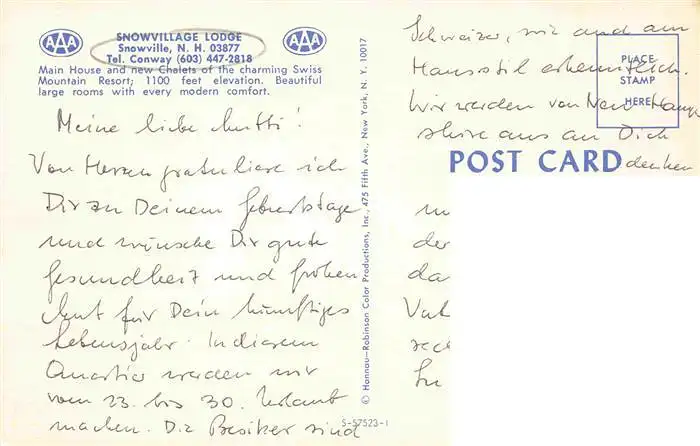 SNOWVILLAGE LODGE
Snowville, N. H. 03877
Tel. Conway (603) 447-2818
Main House and new Chalets of the charming Swiss
Mountain Resort; 1100 feet elevation. Beautiful
large rooms with every modern comfort.
Meine liebe Mutti!
Von Herzen gratuliere ich
Dir zu Deinem Geburtstage
und wünsche Dir gute
Gesundheit und frohen
Mut für Dein künftiges
Lebensjahr. In diesem
Quartier werden wir
vom 23. bis 30. Urlaub
machen. Die Besitzer sind
Schweizer, wie auch am
Hausstil erkenntlich.
Wir werden von New Hamp
shire aus an Dich
denken
der
da
Vat
Lu
PLACE
STAMP
HERE
POST CARD
© Hannau-Robinson Color Productions, Inc., 475 Fifth Ave., New York, N. Y. 10017
S-57523-1